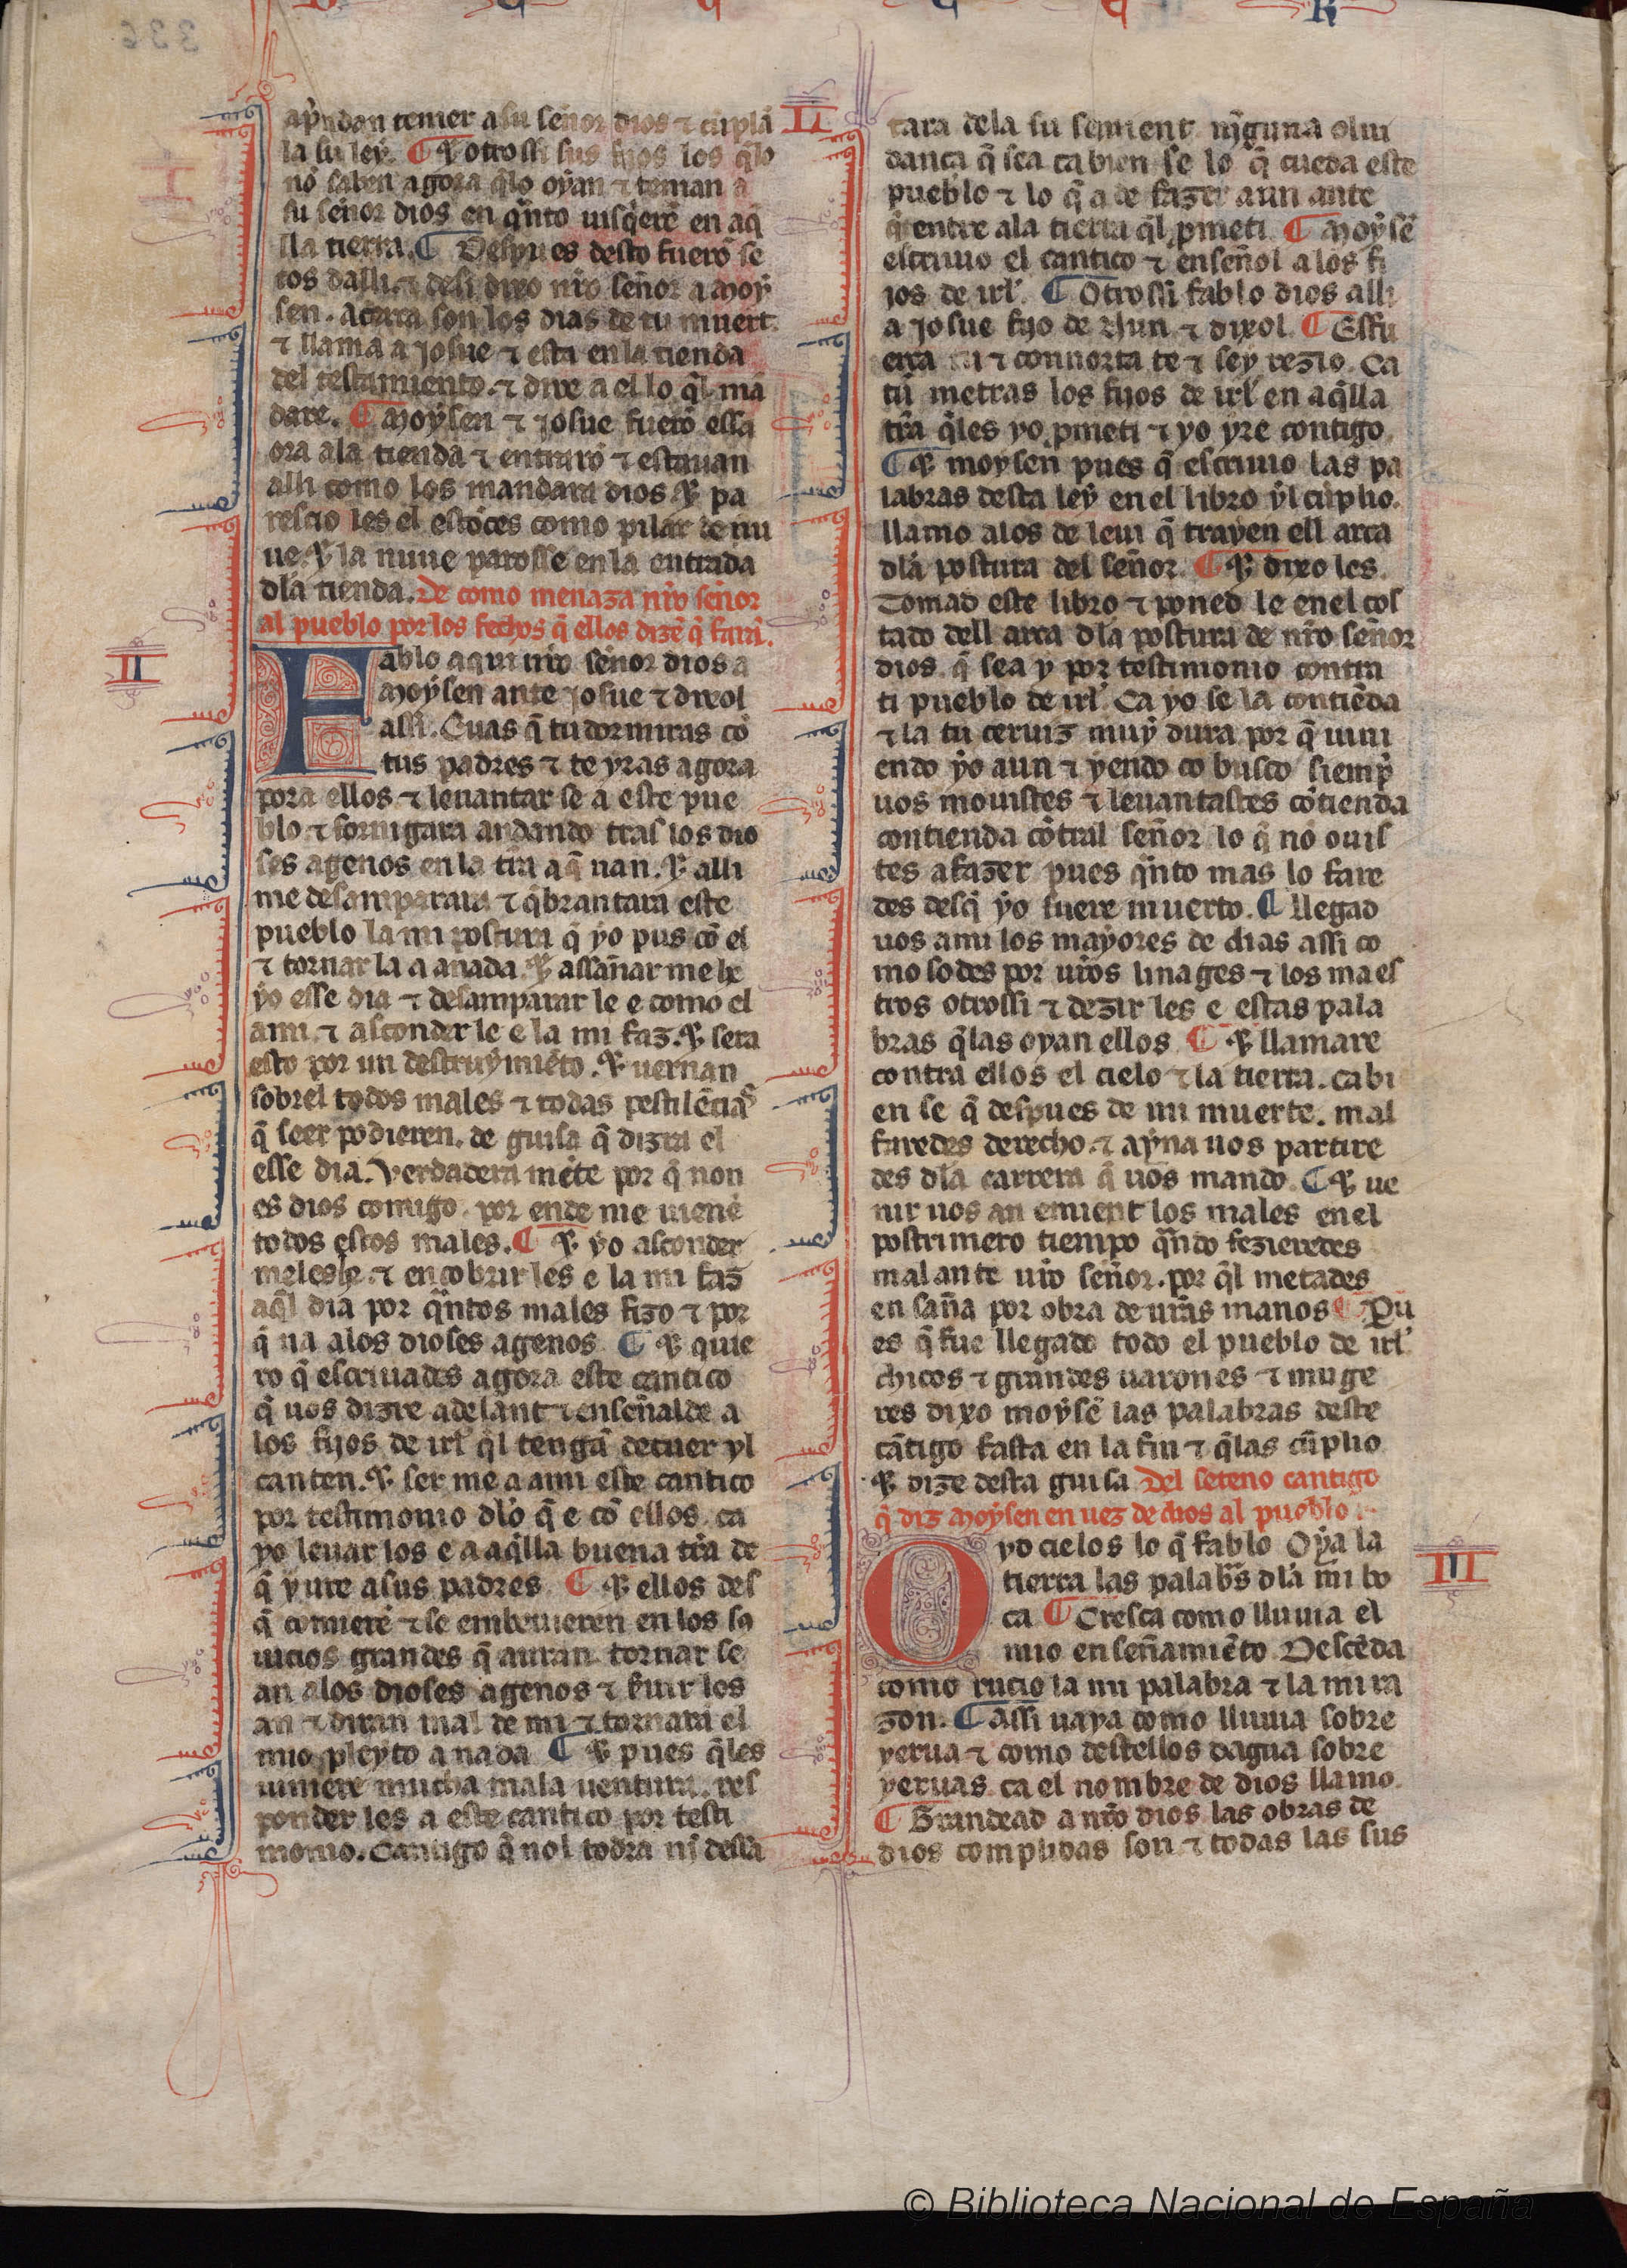 ap̃ndan temer a su señor dios ⁊ cũplã
la su ley. ¶ ⁊ otrossi sus fijos los q̃lo
nõ saben agora q̃lo oyan ⁊ teman a
su señor dios en q̃nto uisq̃erẽ en aq̃
lla tierra. ¶ Despues desto fuerõ se
tos dalli. ⁊ desi dixo nr̃o señor a moy
sen. acerca son los dias de tu muert.
⁊ llama a josue ⁊ esta en la tienda
del testamiento. ⁊ dire a el lo q̃l mã
dare. ¶ moysen ⁊ josue fuerõ essa
ora ala tienda ⁊ entrarõ ⁊ estauan
alli como los mandara dios. ⁊ pa
rescio les el estõces como pilar de nu
ue. ⁊ la nuue parosse en la entrada
dla tienda. De como menaza nr̃o señor
al pueblo por los fechos q̃ ellos dizẽ q̃ farã.
II
Fablo aqui nr̃o señor dios a
moysen ante josue ⁊ dixol
assi. Euas q̃ tu dormiras cõ
tus padres ⁊ te yras agora
pora ellos ⁊ leuantar se a este pue
blo ⁊ fornigara andando tras los dio
ses agenos en la tr̃a a q̃ uan. ⁊ alli
me desamparara ⁊ q̃brantara este
pueblo la mi postura q̃ yo pus cõ el
⁊ tornar la a anada. ⁊ assañar me he
yo esse dia ⁊ desamparar le e como el
a mi. ⁊ asconder le e la mi faz. ⁊ sera
esto por un destruymiẽto. ⁊ uernan
sobrel todos males ⁊ todas pestilẽcias
q̃ seer podieren. de guisa q̃ dizra el
esse dia. Verdadera mẽte por q̃ non
es dios comigo. por ende me uienẽ
todos estos males. ¶ ⁊ yo asconder
meles he ⁊ encobrir les e la mi faz
aq̃l dia por q̃ntos males fizo ⁊ por
q̃ ua alos dioses agenos. ¶ ⁊ quie
ro q̃ escriuades agora este cantico
q̃ uos dizre adelant ⁊ enseñalde a
los fijos de irl̃ q̃l tengã decuer yl
canten. ⁊ ser me a a mi este cantico
por testimonio dlo q̃ e cõ ellos. ca
yo leuar los e a aq̃lla buena tr̃a de
q̃ yure a sus padres. ¶ ⁊ ellos des
q̃ comierẽ ⁊ se embeuieren en los sa
uicios grandes q̃ auran. tornar se
an alos dioses agenos ⁊ seruir los
an ⁊ diran mal de mi ⁊ tornara el
mio pleyto a nada. ¶ ⁊ pues q̃les
uiniere mucha mala uentura. res
ponder les a este cantico por testi
monio. Cantigo q̃ nol todra nj̃ dessa
tara dela su semient njguna olui
dança q̃ sea ca bien se lo q̃ cueda este
pueblo ⁊ lo q̃ a de fazer aun ante
q̃ entre ala tierra q̃l pmeti. ¶ moysẽ
escriuio el cantico ⁊ enseñol a los fi
jos de irl̃. ¶ Otrossi fablo dios alli
a josue fijo de Nun ⁊ dixol. ¶ Esfu
erça tu ⁊ connorta te ⁊ sey rezio. Ca
tu metras los fijos de irl̃ en aq̃lla
tr̃a q̃les yo pmeti ⁊ yo yre contigo.
¶ ⁊ moysen pues q̃ escriuio las pa
labras desta ley en el libro yl cũplio.
llamo alos de leui q̃ trayen ell arca
dla postura del señor. ¶ ⁊ dixo les.
Tomad este libro ⁊ poned le enel cos
tado dell arca dla postura de nr̃o señor
dios. q̃ sea y por testimonio contra
ti pueblo de irl̃. Ca yo se la contiẽda
⁊ la tu ceruiz muy dura. por q̃ uiui
endo yo aun ⁊ yendo co busco siemp̃
uos mouistes ⁊ leuantastes cõtienda
contienda cõtral señor lo q̃ nõ ouis
tes a fazer pues q̃nto mas lo fare
des desq̃ yo fuere muerto. ¶ llegad
uos a mi los mayores de dias assi co
mo sodes por ur̃os linages ⁊ los maes
tros otrossi ⁊ dezir les e estas pala
bras q̃las oyan ellos. ¶ ⁊ llamare
contra ellos el cielo ⁊ la tierra. ca bi
en se q̃ despues de mi muerte. mal
faredes derecho. ⁊ ayna uos partire
des dla carrera q̃ uos mando. ¶ ⁊ ue
nir uos an emient los males enel
postrimero tiempo q̃ndo fezieredes
mal ante ur̃o señor. por q̃l metades
en saña por obra de ur̃as manos ¶ Pu
es q̃ fue llegado todo el pueblo de irl̃
chicos ⁊ grandes uarones ⁊ muge
res dixo moysẽ las palabras deste
cãtigo fasta en la fin ⁊ q̃las cũplio
⁊ dize desta guisa. Del seteno cantigo
q̃ diz moysen en uez de dios al pueblo.
III
Oyd cielos lo q̃ fablo Oya la
tierra las palab̃s dla mi bo
ca ¶ Cresca como lluuia el
mio enseñamiẽto. Descẽda
como rucio la mi palabra ⁊ la mi ra
zon. ¶ Assi uaya como lluuia sobre
yerua ⁊ como destellos dagua sobre
yeruas. ca el nombre de dios llamo.
¶ Grandead a nr̃o dios las obras de
dios complidas son ⁊ todas las sus
© Biblioteca Nacional de España